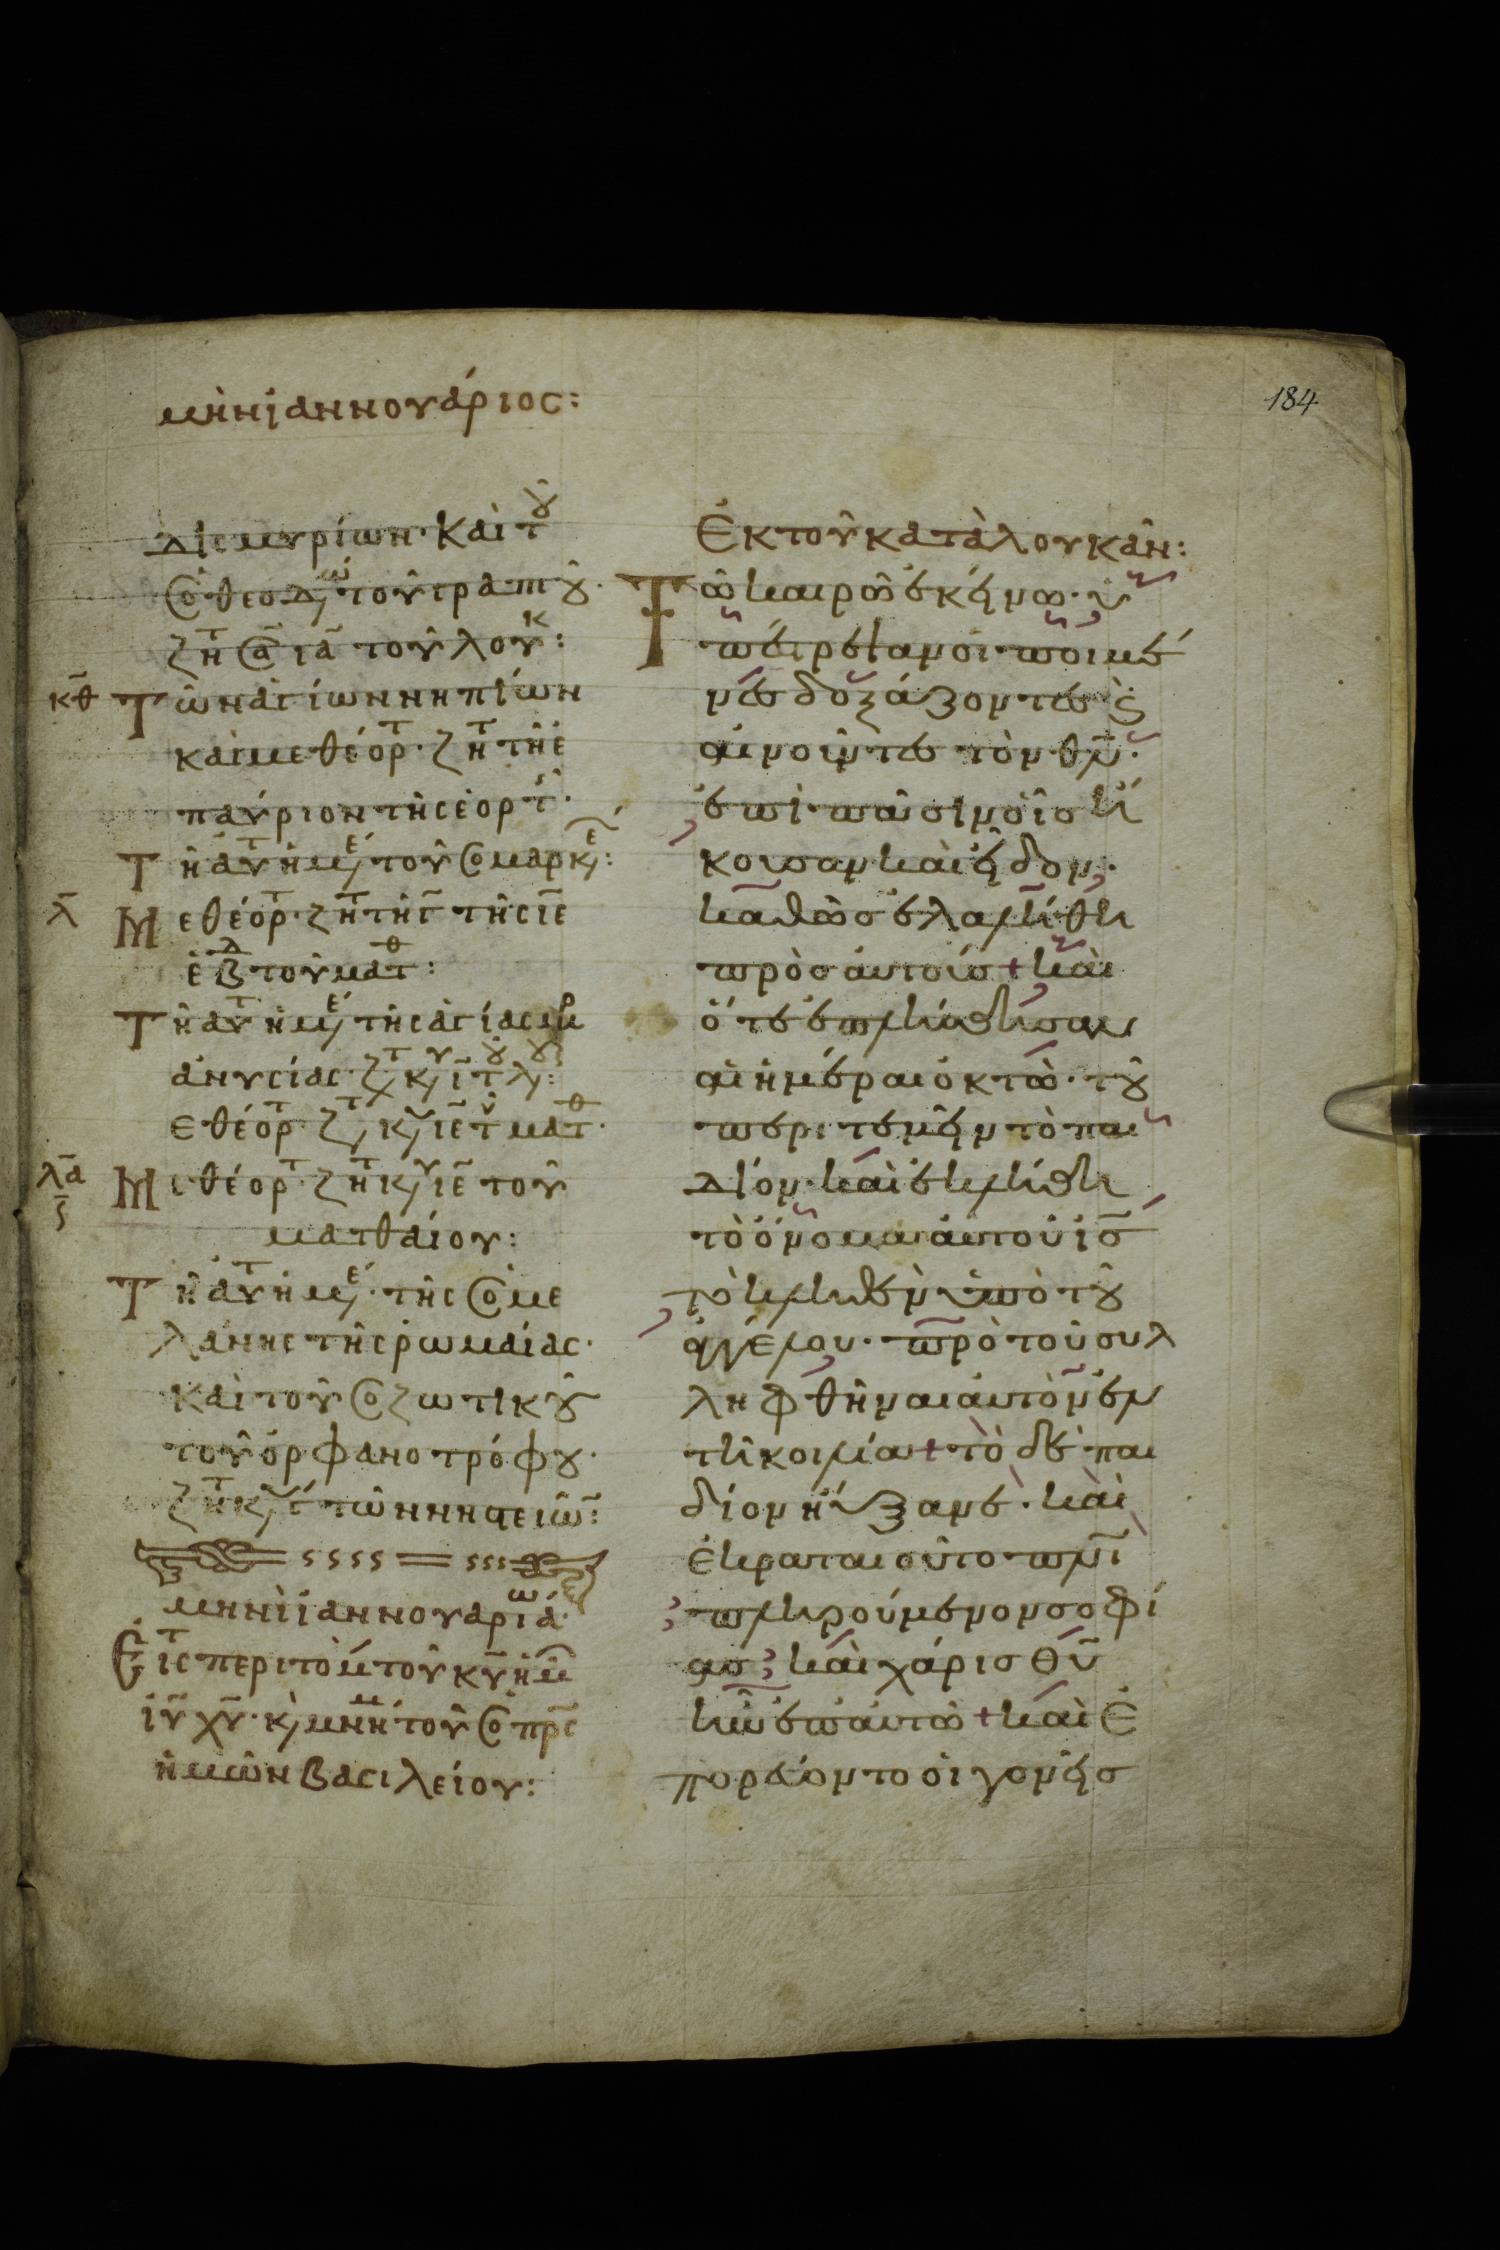 μὴν ἰαννουάριος:
184
δισμυρίων· καὶ τοῦ
θεοδώ τοῦ γραπτοῦ·
ζητ ια τοῦ λουκ:
κθ Τῶν ἁγίων νηπίων
καὶ μεθέορτ· ζητ τῆ ἐ
παύριον τῆς ἑορτ·
Τῆ αὐτ ἡμέ τοῦ μαρκε:
λ Μεθέορτ· ζητ τῆ γ τῆς ιε
ἑβδ τοῦ ματθ:
Τῆ αὐτ ἡμέ τῆς ἁγίας μρ
ἀνυσίας· ζτ κυ ι τοῦ λου:
εθέορτ· ζτ κυ ιε τοῦ ματθ·
λα Μεθέορτ· ζητ κυ ιε τοῦ
ματθαίου:
Τῆ αὐτ ἡμέ· τῆς ὁ με
λάνης τῆς ῥωμαίας·
καὶ τοῦ ὁ ζωτικοῦ
τοῦ ὀρφανοτρόφου·
ζητ κυ γ τῶν νηστειῶ:
μηνὶ ἰαννουαρίω ά·
Εἰς τ περιτομ τοῦ κυ ἡμ
ἰυ χυ· κὶ μνημ τοῦ ὁ πρς
ἡμῶν βασιλείου:
Ἐκ τοῦ κατὰ λουκᾶν:
Τῶ καιρῶ ἐκείνω· ὑ
πέστρεψαν οἱ ποιμέ
νες δοξάζοντες κὶ
αἰνοῦντες τὸν θν·
ἐπὶ πᾶσιν οἷς ἤ
κουσαν καὶ εἶδον·
καθὼς ἐλαλήθη
πρὸς αὐτούς + καὶ
ὅτε ἐπλήσθησαν
αἱ ἡμέραι ὀκτὼ· τοῦ
περιτεμεῖν τὸ παι
δίον· καὶ ἐκλήθη
τὸ ὄνομα αὐτοῦ ἰς
τὸ κληθὲν ὑπὸ τοῦ
ἀγγέλου· πρὸ τοῦ συλ
ληφθῆναι αὐτὸν ἐν
τῆ κοιλία + τὸ δὲ παι
δίον ηὔξανε· καὶ
ἐκραταιοῦτο πνι
πληρούμενον σοφί
ας· καὶ χάρις θυ
ἦν ἐπ αὐτὸ + καὶ Ἐ
πορεύοντο οἱ γονεῖς